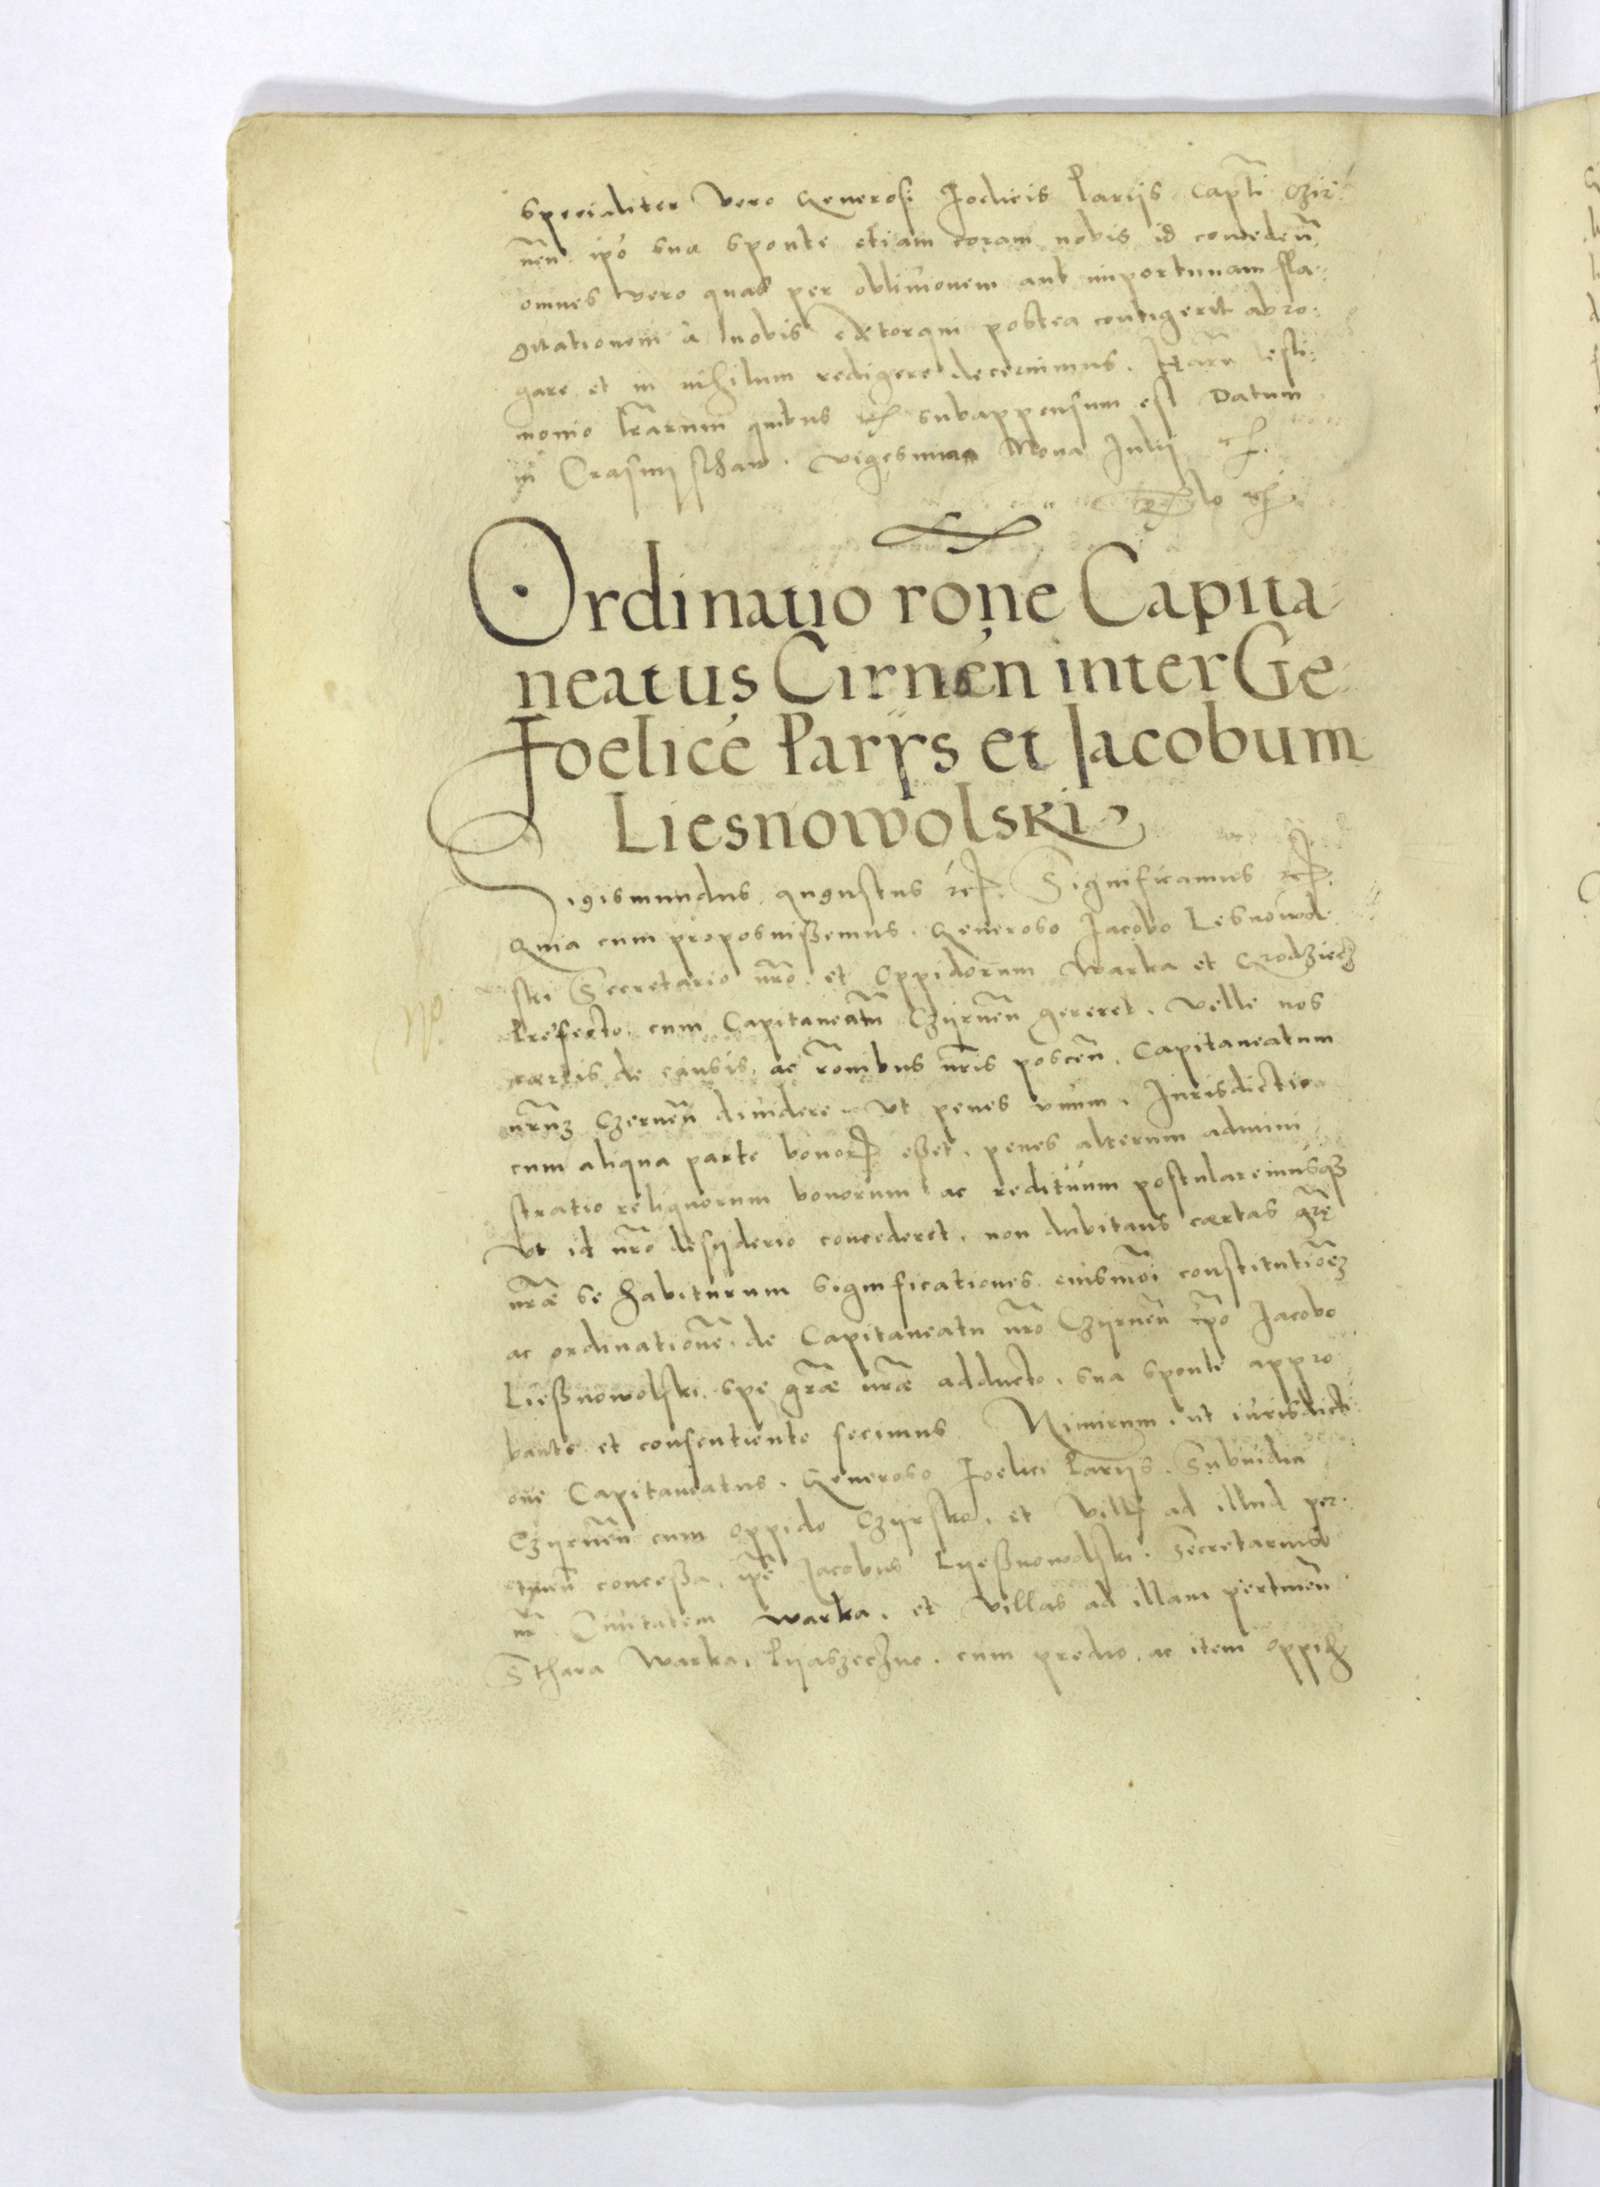 specialiter vero Generosi Foelicis Parijs Capti Czir
nen̄ ipo sua sponte etiam coram nobis id conceden̄
omnes vero quas per oblivionem aut importunam fla
gitationem a nobis extorqui postea contigerit abro
gare et in nihilum redigere decernimus. Harū testi
monio lrarum quibus etc subappensum est Datum
in Crasnijsthaw. vigesima Nona Julij etc.
Ordinatio rone Capita
neatus Cirnen inter Ge
Foelice Parys et Jacobum
Liesnowolski
Sigismundus augustus rex etc. Significamus etc.
Quia cum proposuissemus. Generoso Jacobo Lesnowol
ski Secretario nro. et Oppidorum Warka et Grodziecz
Prefecto. cum Capitaneatū Czijrnen̄ gereret. velle nos
certis de causis. ac ronibus nris poscen̄. Capitaneatum
nrūz Czernen̄ dividere. Ut penes unum. Jurisdictio
cum aliqua parte bonor esset. penes alterum admini
stratio reliquorum bonorum ac redituum postularemusqz
Ut id nro desyderio concederet. non dubitans certas grę
nræ se habiturum significationes. eiusmoi constitutionez
ac ordinationē. de Capitaneatu nro Czijrnen̄ ipo Jacobo
Liessnowolski. spe græ nræ adducto. sua sponte appro
bante et consentiente fecimus Nimirum. ut iurisdicti
one Capitaneatus. Generoso Foelici Parijs. Subiudici
Czijrnen̄ cum oppido Czijrsko. et vill ad illud per
tinen̄ concessa. ipe Jacobus Lijessnowolski. Secretarius
nr Civitatem Warka. et villas ad illam pertinen̄
Sthara Warka. Pijaszeczno. cum predio. ac item oppid